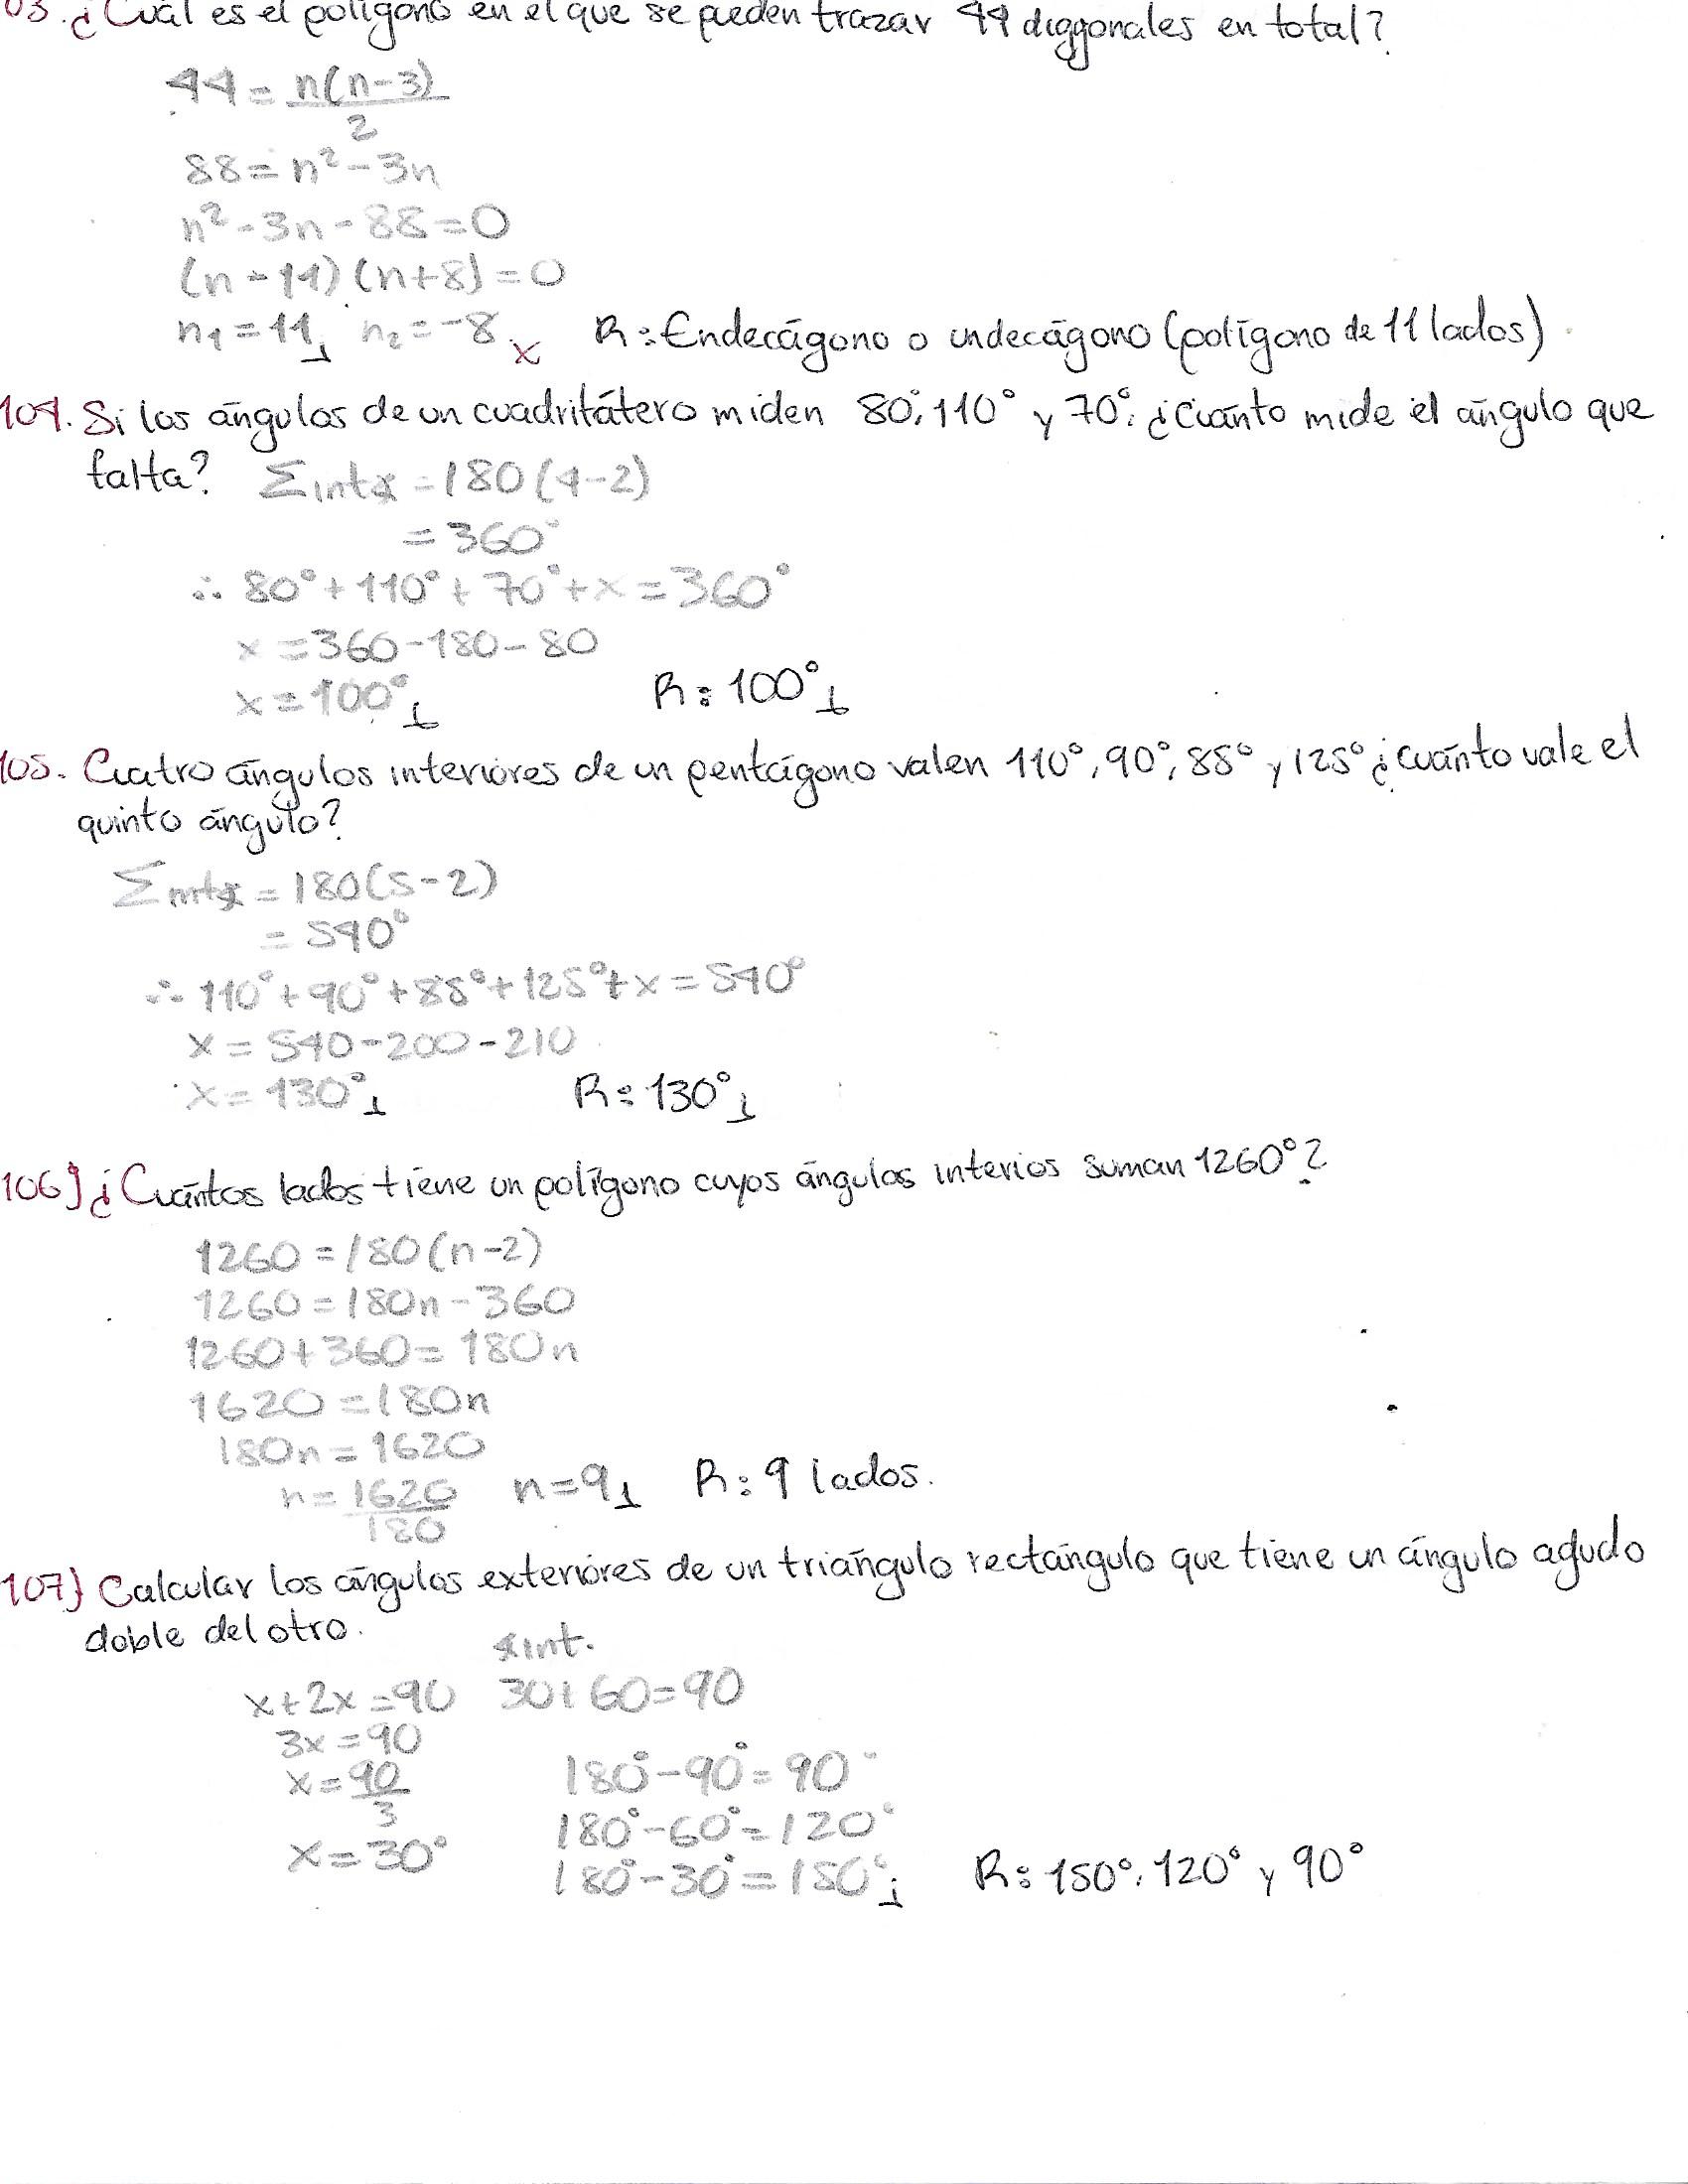 03. ¿Cuál es el polígono en el que se pueden trazar 44 diagonales en total?
44 = n(n-3)
2
88 = n² - 3n
n² - 3n - 88 = 0
(n - 11) (n + 8) = 0
n₁ = 11 n₂ = -8 x R: Endecágono o undecágono (polígono de 11 lados)
104. Si los ángulos de un cuadrilátero miden 80°, 110° y 70°. ¿Cuánto mide el ángulo que
falta? Σ int∢ = 180 (4-2)
= 360°
∴ 80° + 110° + 70° + x = 360°
x = 360 - 180 - 80
x = 100° R: 100°
105. Cuatro ángulos interiores de un pentágono valen 110°, 90°, 85° y 125° ¿cuánto vale el
quinto ángulo?
Σ int∢ = 180 (5-2)
= 540°
∴ 110° + 90° + 85° + 125° + x = 540°
x = 540 - 200 - 210
x = 130° R: 130°
106} ¿Cuántos lados tiene un polígono cuyos ángulos interios suman 1260°?
1260 = 180 (n-2)
1260 = 180n - 360
1260 + 360 = 180n
1620 = 180n
180n = 1620
n = 1620 n = 9 R: 9 lados.
180
107} Calcular los ángulos exteriores de un triángulo rectángulo que tiene un ángulo agudo
doble del otro.
∢int.
x + 2x = 90 30 + 60 = 90
3x = 90
x = 90 180° - 90° = 90°
3
180° - 60° = 120°
x = 30° 180° - 30° = 150° R: 150°, 120° y 90°